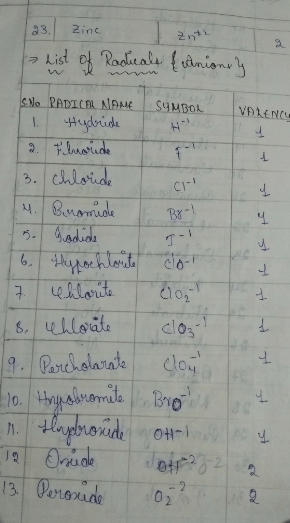 23. Zinc Zn⁺² 2
→ List of Radicals {anions}
S.No RADICAL NAME SYMBOL VALENCY
1. Hydride H⁻¹ 1
2. Fluoride F⁻¹ 1
3. Chloride Cl⁻¹ 1
4. Bromide Br⁻¹ 1
5. Iodide I⁻¹ 1
6. Hypochlorite ClO⁻¹ 1
7. Chlorite ClO₂⁻¹ 1
8. Chlorate ClO₃⁻¹ 1
9. Percholarate ClO₄⁻¹ 1
10. Hypobromite BrO⁻¹ 1
11. Hydroxide OH⁻¹ 1
12 Oxide 2
13. Peroxide O₂⁻² 2